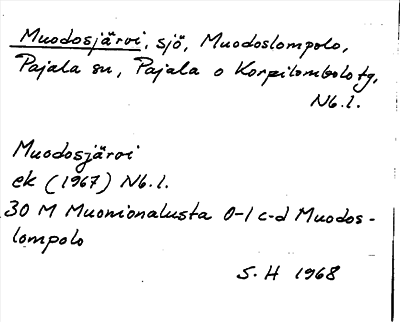 Muodosjärvi, sjö, Muodoslompolo,
Pajala sn, Pajala o Korpilombolo tg,
Nb. l.
Muodosjärvi
ek (1967) Nb. l.
30 M Muonionalusta 0-1 c-d Muodos-
lompolo
S. H 1968